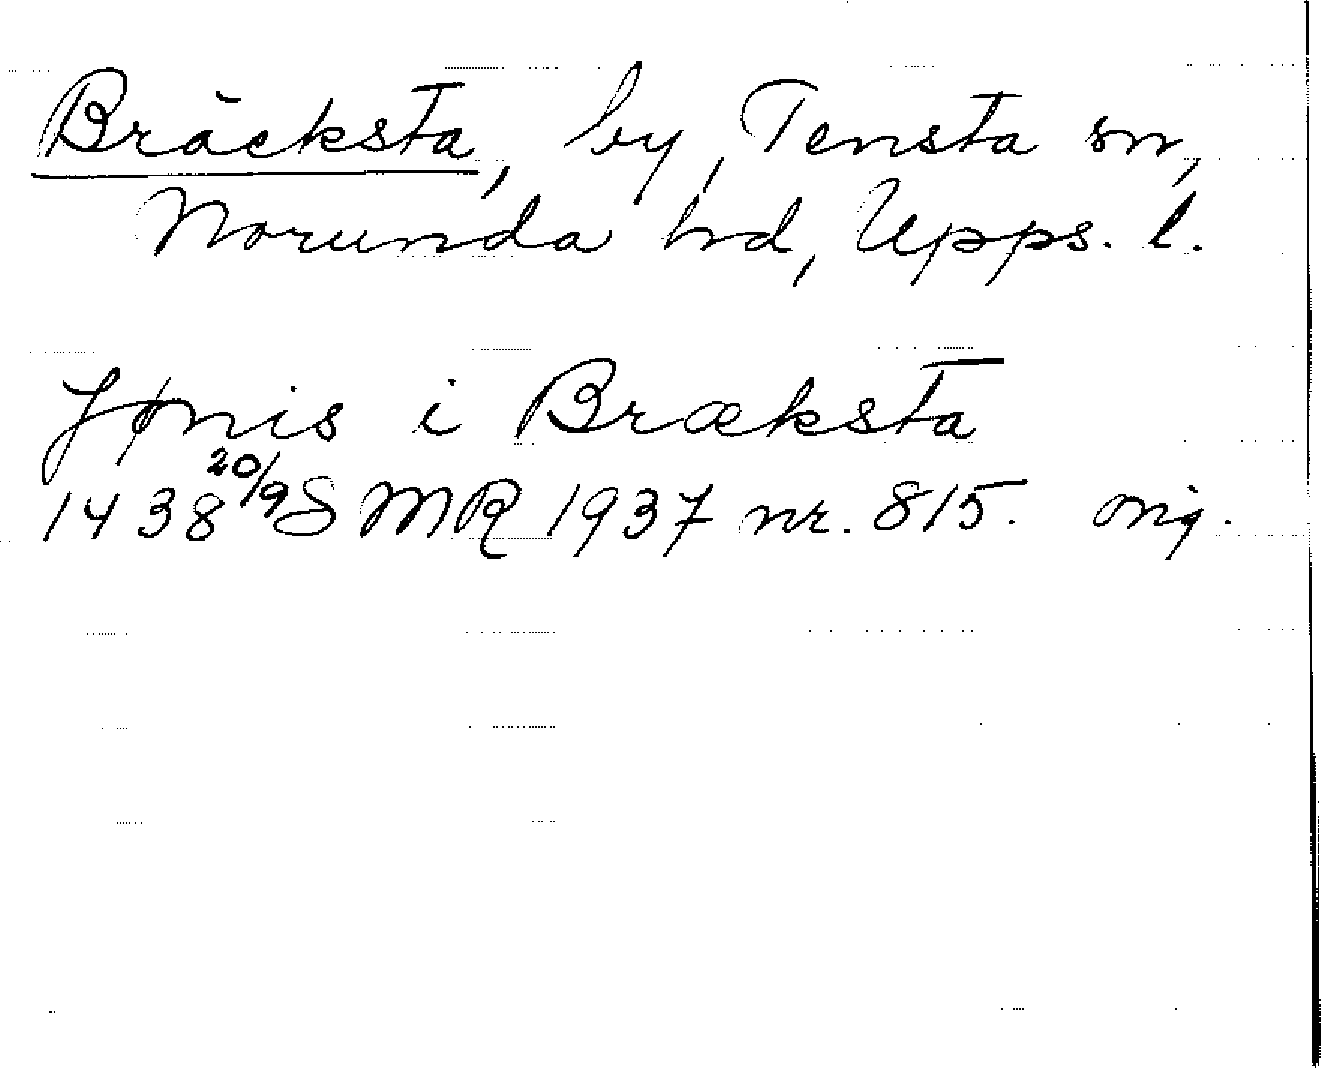 Bräcksta, by, Tensta sn,
Norunda hd, Upps. l.
Jønis i Bræksta
1438 20/9 SMR 1937 nr. 815. orig.